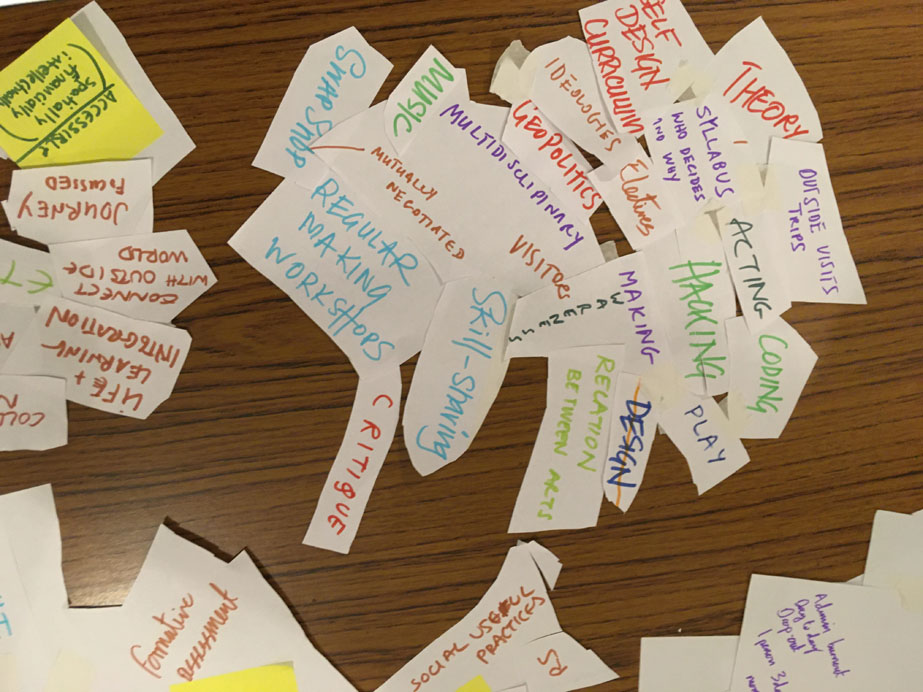 ACCESSIBLE
(spatially
financially
JOURNEY
FOCUSSED
CONNECT
WITH OUTSIDE
WORLD
LIFE +
LEARNING
INTEGRATION
SNAP SHOP
MUSIC
MULTIDISCLIPINARY
MUTUALLY
NEGOTIATED
REGULAR
MAKING
WORKSHOPS
GEOPOLITICS
IDEOLOGIES
SELF
DESIGN
CURRICULUM
Electives
THEORY
SYLLABUS
WHO DECIDES
AND WHY
OUTSIDE VISITS
TRIPS
VISITORS
ACTING
HACKING
MAKING
CODING
Skill-sharing
CRITIQUE
RELATION
BETWEEN ARTS
DESIGN
PLAY
formative
assessment
SOCIAL USEFUL
PRACTICES
Admin burnout
Day to day
Drop-out